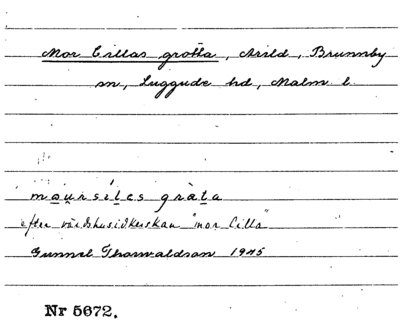 Mor Cillas grotta, Arild, Brunnby
sn, Luggude hd, Malm. l.
mo̲u̲rsil̲es gràt̲a
efter värdshusidkerskan "mor Cilla"
Gunnel Thorwaldson 1945
Nr 5672.